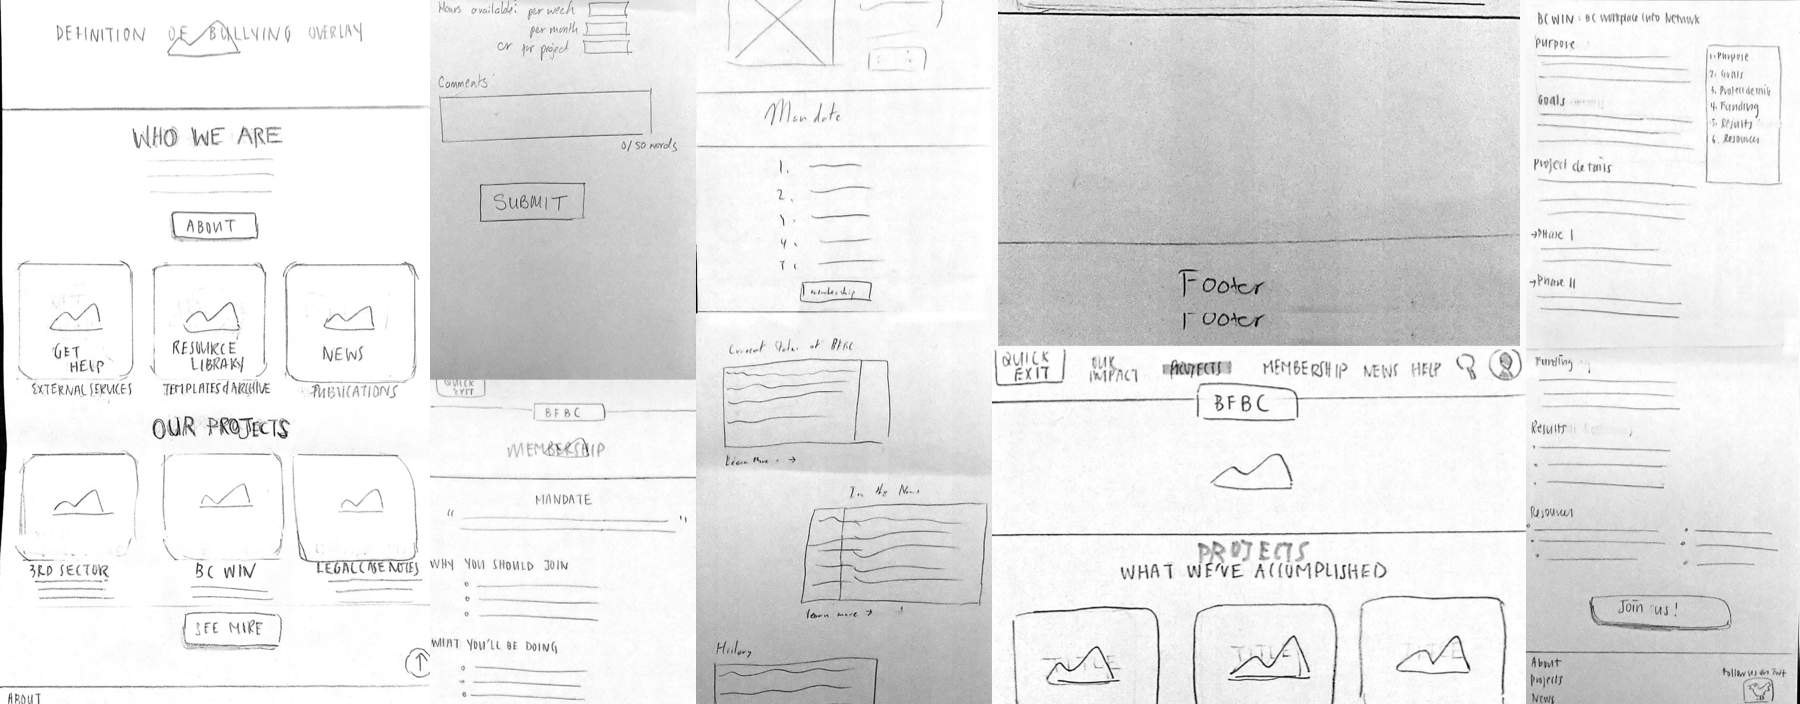 DEFINITION OF BULLYING OVERLAY
WHO WE ARE
ABOUT
GET HELP
EXTERNAL SERVICES
RESOURCE LIBRARY
TEMPLATES & ARCHIVE
NEWS
PUBLICATIONS
OUR PROJECTS
3RD SECTOR
BC WIN
LEGAL CASE NOTES
SEE MORE
ABOUT
Hours available: per week
per month
or per project
Comments:
0/50 words
SUBMIT
QUICK EXIT
BFBC
MEMBERSHIP
MANDATE
“ ”
WHY YOU SHOULD JOIN
WHAT YOU'LL BE DOING
Mandate
1.
2.
3.
4.
5.
membership
Current State of BFBC
Learn More →
In the News
learn more →
History
Footer
Footer
QUICK EXIT
OUR IMPACT
PROJECTS
MEMBERSHIP
NEWS
HELP
BFBC
PROJECTS
WHAT WE'VE ACCOMPLISHED
TITLE
TITLE
TITLE
BC WIN: BC Workplace Info Network
Purpose
1. Purpose
2. Goals
3. Project details
4. Funding
5. Results
6. Resources
Goals
Project details
→Phase I
→Phase II
Funding
Results
Resources
Join us!
About
Projects
News